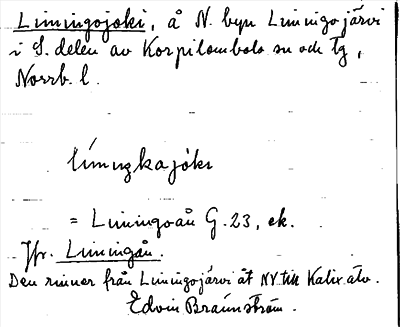 Liningojoki, å N. byn Liningojärvi
i S. delen av Korpilombolo sn och tg,
Norrb. l.
= Liningoån G. 23, ek.
Jfr. Liningån.
Den rinner från Liningojärvi åt NV till Kalix älv.
Edvin Brännström.